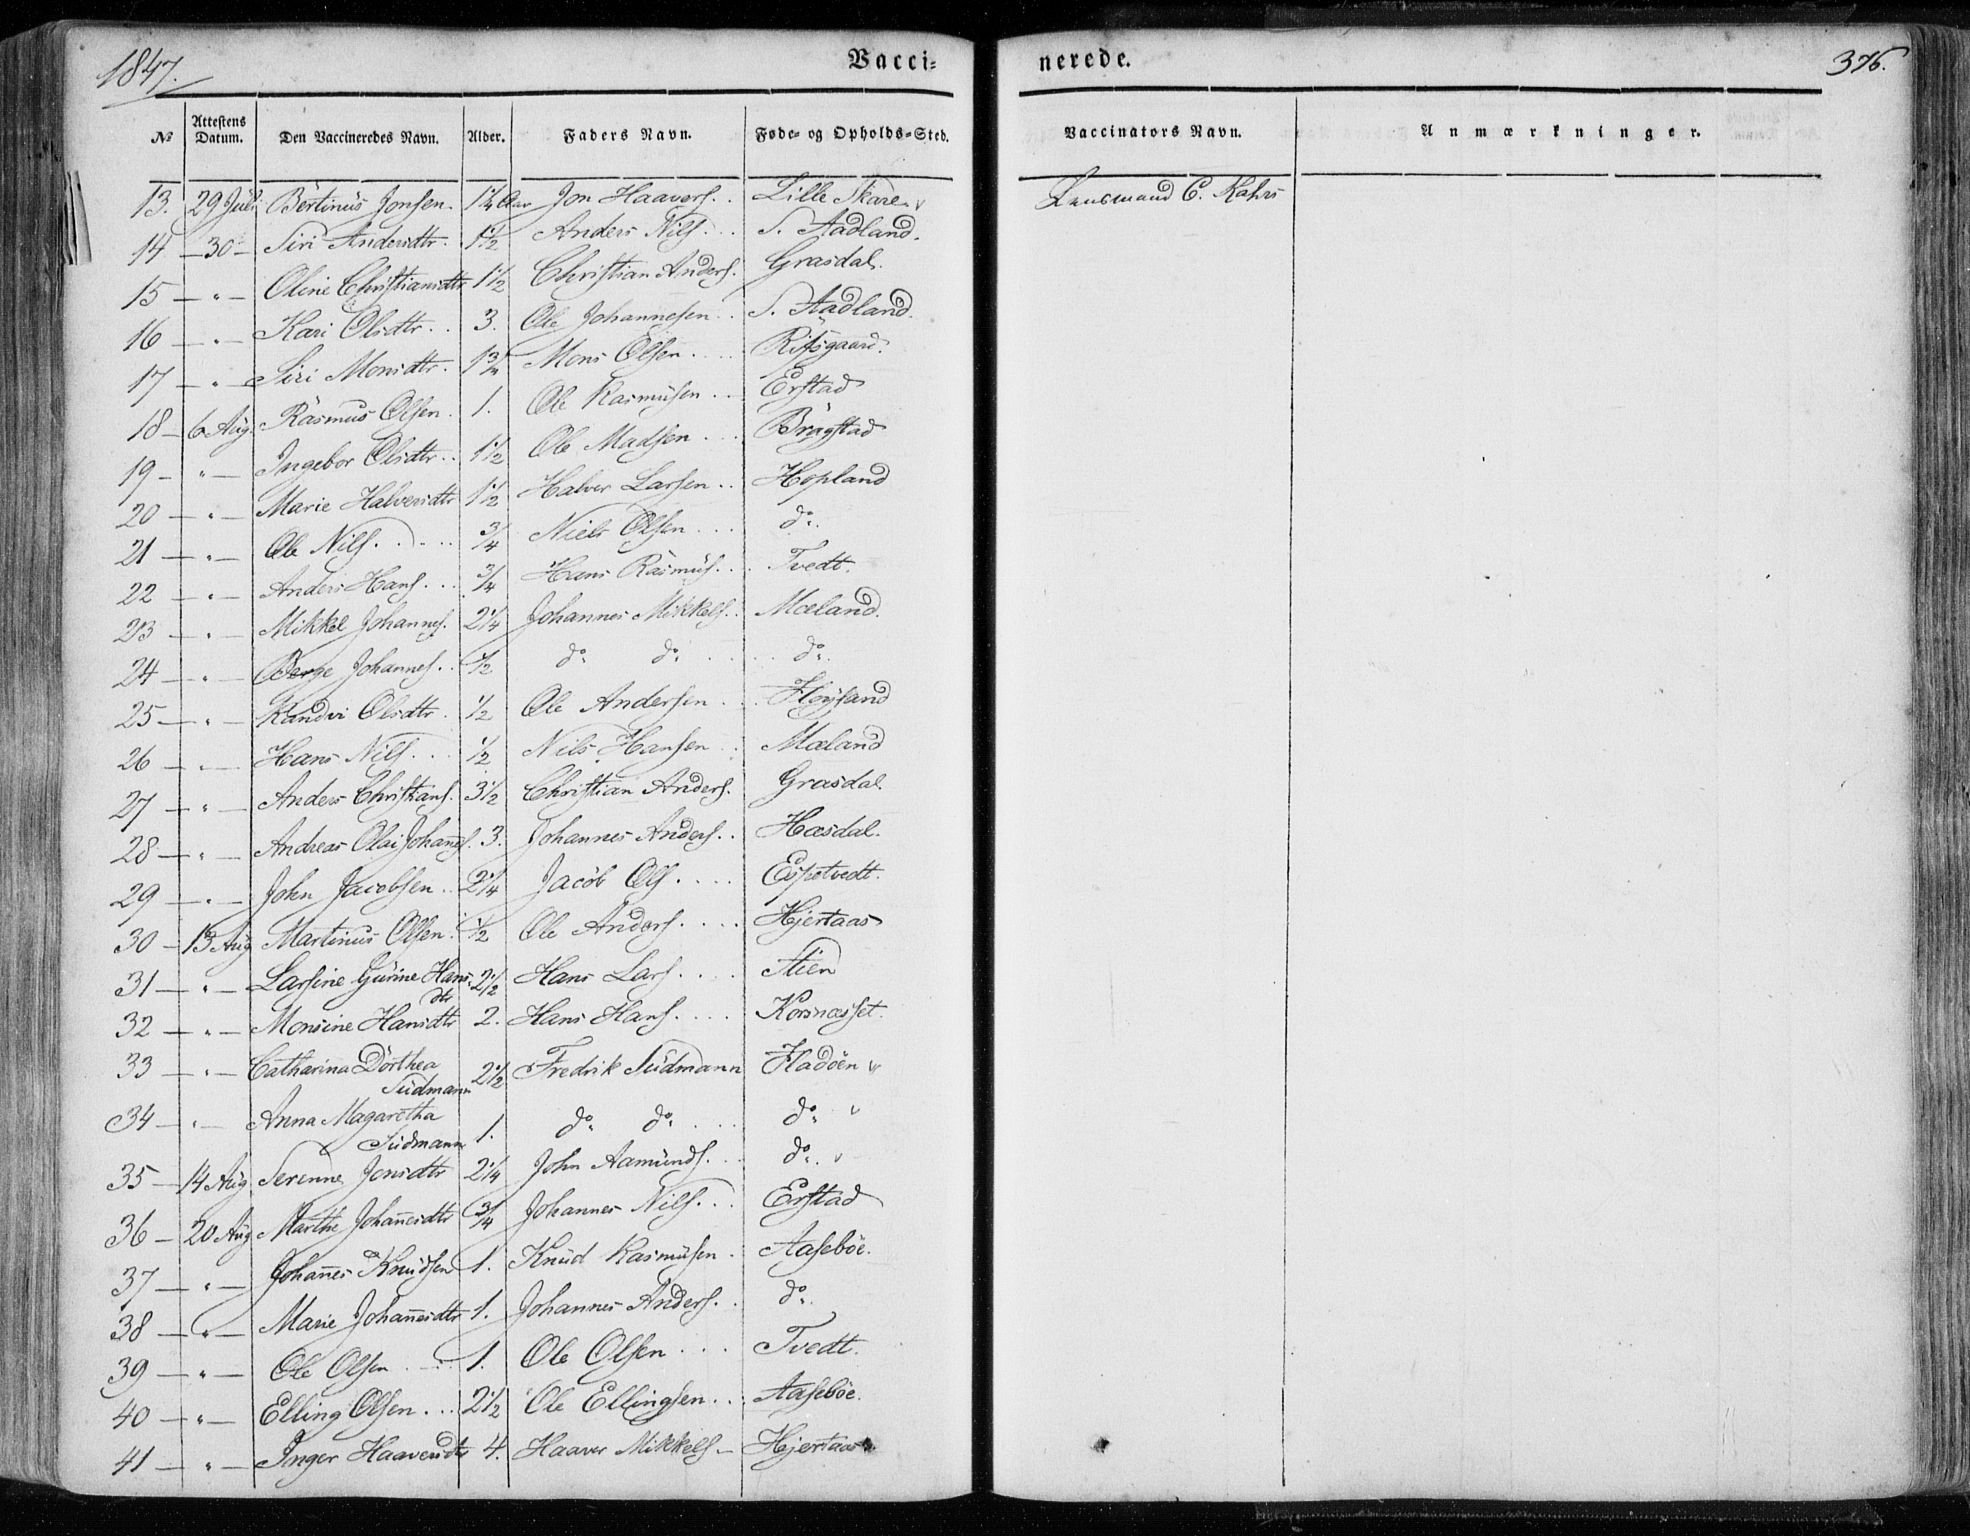 1847.
Vacci-
nerede.
376.
№ Attestens Datum. Den Vaccineredes Navn. Alder. Faders Navn. Føde- og Opholds-Sted. Vaccinators Navn. Anmærkninger.
13. 29 Juli Bertinus Jonsen. 1¼ Aar Jon Haavers. . Lille Skare. Lensmand C. Kahrs
14 — 30 — Siri Andersdtr. 1½ Anders Nils. . . S. Aadland.
15 — " — Oline Christiansdtr 1½ Christian Anders. Grasdal.
16 — " — Kari Olsdtr. . 3. Ole Johannesen . . S. Aadland.
17 — " — Siri Monsdtr. 1¾ Mons Olsen. . . . Risgaard.
18 — 6 Aug. Rasmus Olsen. 1. Ole Rasmusen . . Erstad
19 — " — Ingebor Olsdtr. . 1½ Ole Madsen . . . Bragstad
20 — " — Marie Halversdtr 1½ Halver Larsen . . Hopland
21 — " — Ole Nils. . . . . ¾ Niels Olsen . . . do.
22 — " — Anders Hans. . . ¾ Hans Rasmus. . . Tvedt.
23 — " — Mikkel Johannes. 2¼ Johannes Mikkels. . Mæland.
24 — " — Berge Johannes. . ½ do. do. . . . . do.
25 — " — Randvi Olsdtr. ½ Ole Andersen . . Fløysand
26 — " — Hans Nils. . . ½ Nils Hansen . . Mæland
27 — " — Anders Christians. 3½ Christian Anders. Grasdal.
28 — " — Andreas Olai Johañes. 3. Johannes Anders. . Hæsdal.
29 — " — John Jacobsen . . 2¼ Jacob Ols. . . . Espetvedt.
30 — 13 Aug Martinus Olsen. ½ Ole Anders. . . . Hjertaas
31 — " — Larsine Gurine Hans- 2½ Hans Lars. . . . Stien
dtr
32 — " — Monsine Hansdtr 2. Hans Hans. . . . Korsnæsset.
33 — " — Catharina Dorthea 2½ Fredrik Sudmann Fladöen
Sudmann
34 — " — Anna Magaretha
Sudmann 1. do. do. . . . do.
35 — 14 Aug Serenne Jonsdtr 2¼ John Aamunds. . do.
36 — 20 Aug Marthe Johañesdtr ¾ Johannes Nils. . . Erstad
37 — " — Johañes Knudsen 1. Knud Rasmusen . Aaseböe.
38 — " — Marie Johañesdtr 1. Johannes Anders. . do.
39 — " — Ole Olsen . . . 1. Ole Olsen . . . Tvedt.
40 — " — Elling Olsen. . . 2½ Ole Ellingsen. . . Aaseböe.
41 — " — Inger Haaversdtr 4. Haaver Mikkels — Hjertaas